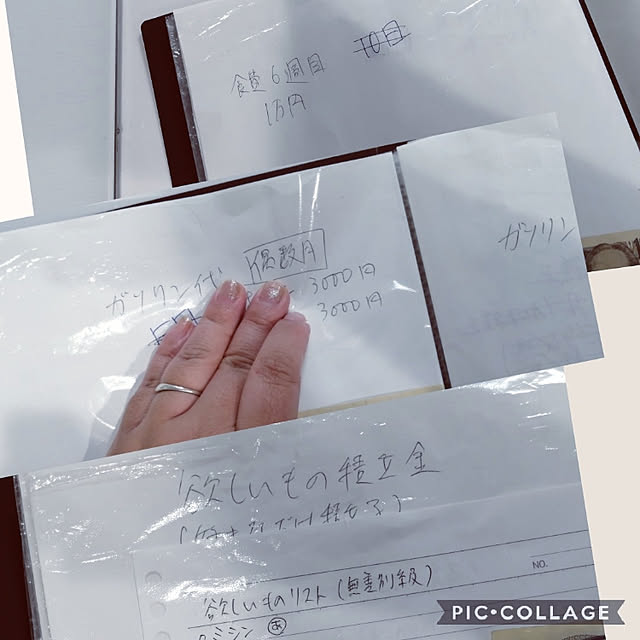 食費6週目
1万円
ガソリン代
偶数月
3000円
3000円
ガソリン
欲しいもの積立金
NO.
欲しいものリスト(無差別級)
ミシン あ
PIC•COLLAGE